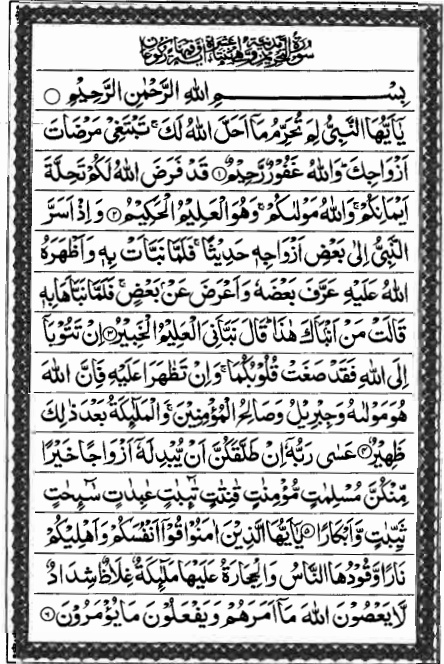 سُوْرَةُ التَّحْرِيْمِ مَدَنِيَّةٌ وَّهِىَ اثْنَتَا عَشْرَةَ اٰيَةً وَّفِيْهَا رُكُوْعَانِ
بِسْمِ اللهِ الرَّحْمٰنِ الرَّحِيْمِ
يٰٓاَيُّهَا النَّبِىُّ لِمَ تُحَرِّمُ مَآ اَحَلَّ اللهُ لَكَ ۚ تَبْتَغِىْ مَرْضَاتَ
اَزْوَاجِكَ ؕ وَاللهُ غَفُوْرٌ رَّحِيْمٌ ۝۱ قَدْ فَرَضَ اللهُ لَكُمْ تَحِلَّةَ
اَيْمَانِكُمْ ۚ وَاللهُ مَوْلٰىكُمْ ۚ وَهُوَ الْعَلِيْمُ الْحَكِيْمُ ۝۲ وَاِذْ اَسَرَّ
النَّبِىُّ اِلٰى بَعْضِ اَزْوَاجِهٖ حَدِيْثًا ۚ فَلَمَّا نَبَّاَتْ بِهٖ وَاَظْهَرَهُ
اللهُ عَلَيْهِ عَرَّفَ بَعْضَهٗ وَاَعْرَضَ عَنْۢ بَعْضٍ ۚ فَلَمَّا نَبَّاَهَا بِهٖ
قَالَتْ مَنْ اَنْۢبَاَكَ هٰذَا ؕ قَالَ نَبَّاَنِىَ الْعَلِيْمُ الْخَبِيْرُ ۝۳ اِنْ تَتُوْبَآ
اِلَى اللهِ فَقَدْ صَغَتْ قُلُوْبُكُمَا ۚ وَاِنْ تَظٰهَرَا عَلَيْهِ فَاِنَّ اللهَ
هُوَ مَوْلٰىهُ وَجِبْرِيْلُ وَصَالِحُ الْمُؤْمِنِيْنَ ۚ وَالْمَلٰٓئِكَةُ بَعْدَ ذٰلِكَ
ظَهِيْرٌ ۝۴ عَسٰى رَبُّهٗٓ اِنْ طَلَّقَكُنَّ اَنْ يُّبْدِلَهٗٓ اَزْوَاجًا خَيْرًا
مِّنْكُنَّ مُسْلِمٰتٍ مُّؤْمِنٰتٍ قٰنِتٰتٍ تٰٓئِبٰتٍ عٰبِدٰتٍ سٰٓئِحٰتٍ
ثَيِّبٰتٍ وَّاَبْكَارًا ۝۵ يٰٓاَيُّهَا الَّذِيْنَ اٰمَنُوْا قُوْٓا اَنْفُسَكُمْ وَاَهْلِيْكُمْ
نَارًا وَّقُوْدُهَا النَّاسُ وَالْحِجَارَةُ عَلَيْهَا مَلٰٓئِكَةٌ غِلَاظٌ شِدَادٌ
لَّا يَعْصُوْنَ اللهَ مَآ اَمَرَهُمْ وَيَفْعَلُوْنَ مَا يُؤْمَرُوْنَ ۝۶